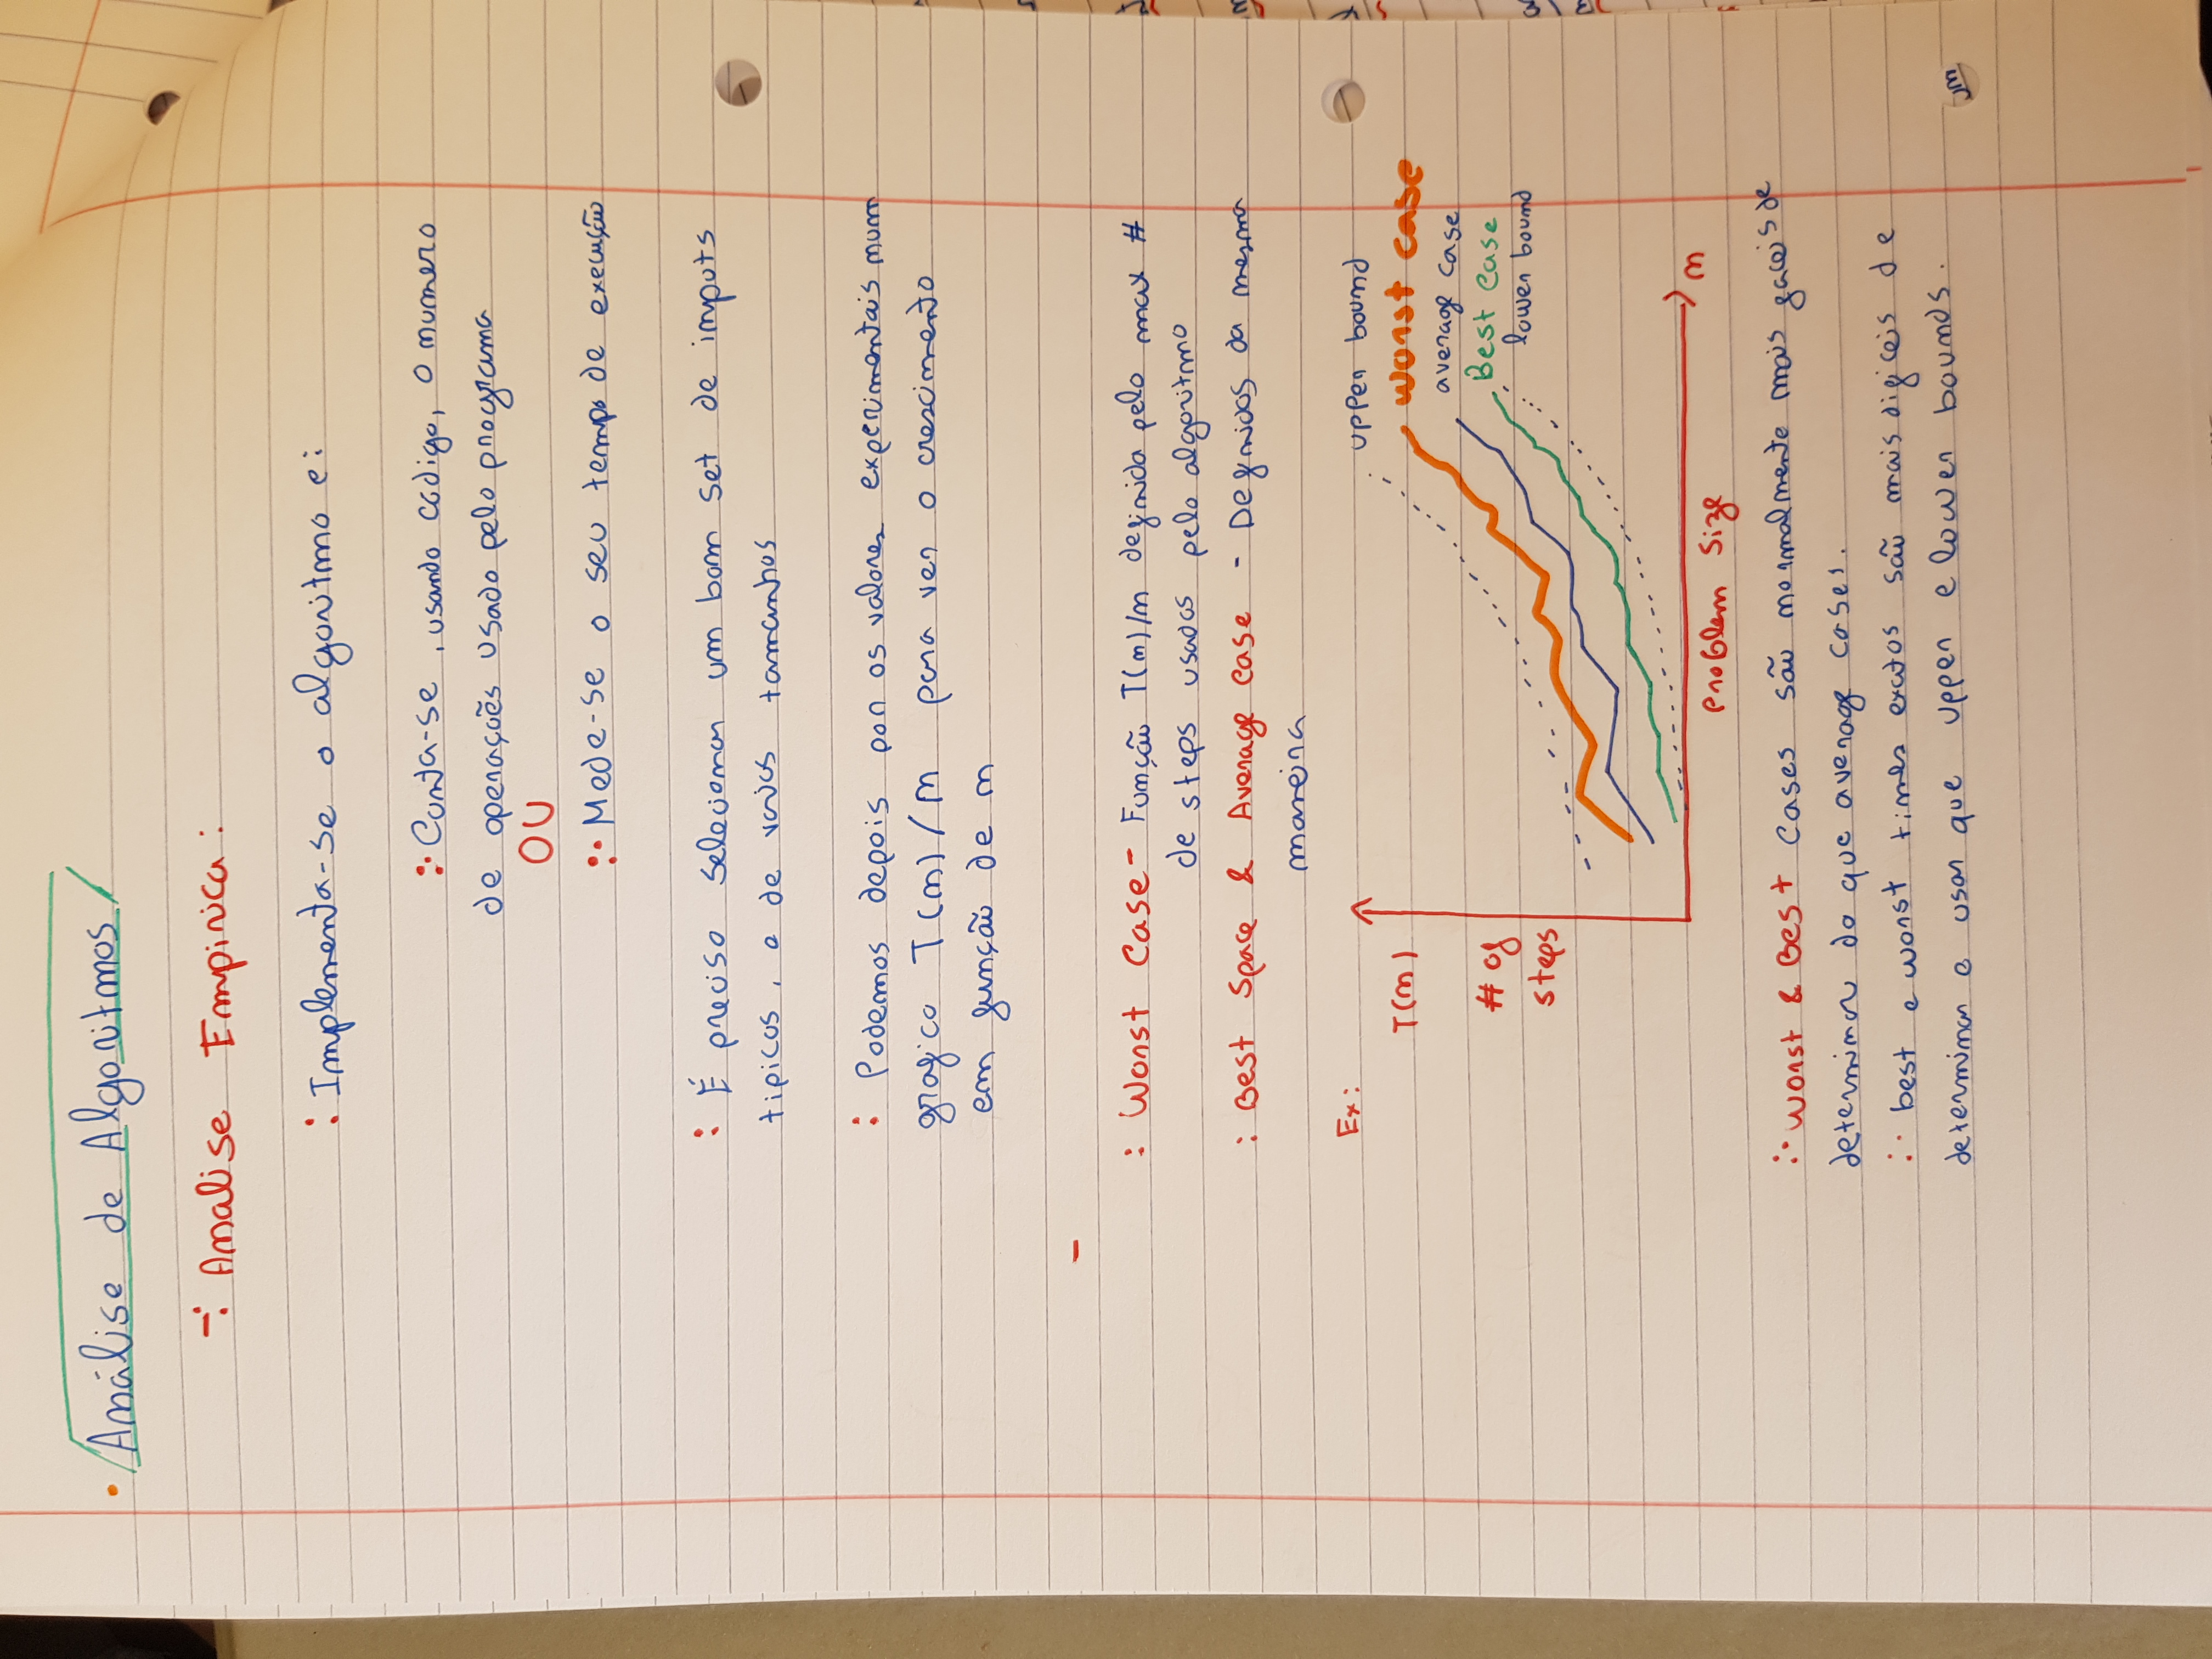 • Análise de Algoritmos
-: Analise Empirica:
: Implementa-se o algoritmo e:
:· Conta-se, usando código, o numero
de operações usado pelo programa
OU
:· Mede-se o seu tempo de execução
: É preciso selecionar um bom set de inputs
tipicos, e de varios tamanhos
: Podemos depois por os valores experimentais num
grafico T(n)/n para ver o crescimento
em função de n
-
: Worst Case - Função T(n)/n definida pelo max #
de steps usados pelo algoritmo
: Best Space & Average Case - Definidos da mesma
maneira
Ex:
upper bound
T(n)
worst case
average case
# of
Best Case
lower bound
steps
n
Problem Size
:· Worst & Best Cases são normalmente mais faceis de
determinar do que average cases.
:· best e worst times exatos são mais dificeis de
determinar e usar que upper e lower bounds.